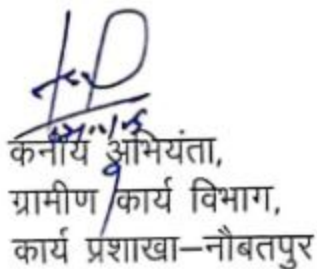 कनीय अभियंता,
ग्रामीण कार्य विभाग,
कार्य प्रशाखा–नौबतपुर